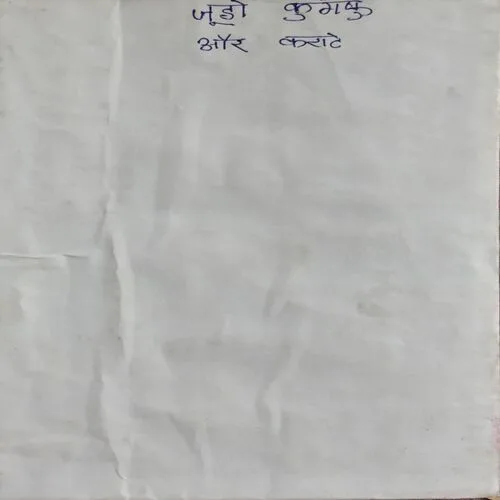 जूडो कुमफु
और कराटे